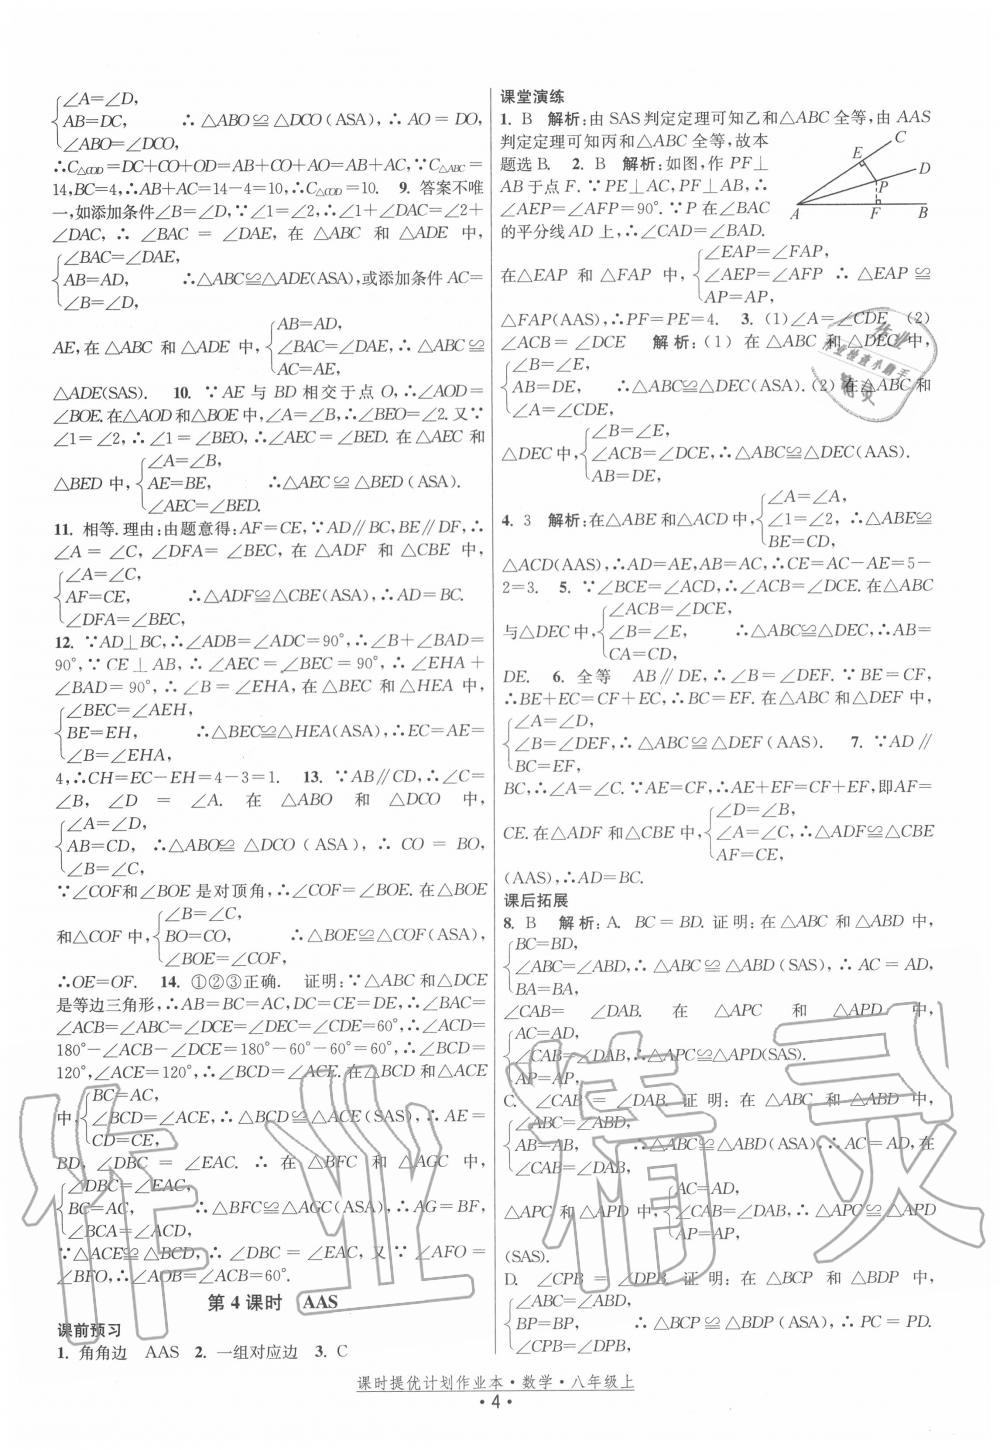 ∠A=∠D,
AB=DC, ∴△ABO≌△DCO(ASA),∴AO=DO,
∠ABO=∠DCO,
∴C△COD=DC+CO+OD=AB+CO+AO=AB+AC,∵C△ABC=
14,BC=4,∴AB+AC=14-4=10,∴C△COD=10. 9. 答案不唯
一,如添加条件∠B=∠D,∵∠1=∠2,∴∠1+∠DAC=∠2+
∠DAC,∴∠BAC=∠DAE,在△ABC和△ADE中,
∠BAC=∠DAE,
AB=AD, ∴△ABC≌△ADE(ASA),或添加条件AC=
∠B=∠D,
AB=AD,
AE,在△ABC和△ADE中,∠BAC=∠DAE,∴△ABC≌
AC=AE,
△ADE(SAS). 10. ∵AE与BD相交于点O,∴∠AOD=
∠BOE.在△AOD和△BOE中,∠A=∠B,∴∠BEO=∠2.又∵
∠1=∠2,∴∠1=∠BEO,∴∠AEC=∠BED.在△AEC和
∠A=∠B,
△BED中,AE=BE, ∴△AEC≌△BED(ASA).
∠AEC=∠BED.
11. 相等.理由:由题意得:AF=CE,∵AD∥BC,BE∥DF,∴
∠A=∠C,∠DFA=∠BEC,在△ADF和△CBE中,
∠A=∠C,
AF=CE, ∴△ADF≌△CBE(ASA),∴AD=BC.
∠DFA=∠BEC,
12. ∵AD⊥BC,∴∠ADB=∠ADC=90°,∴∠B+∠BAD=
90°,∵CE⊥AB,∴∠AEC=∠BEC=90°,∴∠EHA+
∠BAD=90°,∴∠B=∠EHA,在△BEC和△HEA中,
∠BEC=∠AEH,
BE=EH, ∴△BEC≌△HEA(ASA),∴EC=AE=
∠B=∠EHA,
4,∴CH=EC-EH=4-3=1. 13. ∵AB∥CD,∴∠C=
∠B,∠D=∠A.在△ABO和△DCO中,
∠A=∠D,
AB=CD, ∴△ABO≌△DCO(ASA),∴CO=BO,
∠B=∠C,
∵∠COF和∠BOE是对顶角,∴∠COF=∠BOE.在△BOE
∠B=∠C,
和△COF中,BO=CO, ∴△BOE≌△COF(ASA),
∠BOE=∠COF,
∴OE=OF. 14. ①②③正确. 证明:∵△ABC和△DCE
是等边三角形,∴AB=BC=AC,DC=CE=DE,∴∠BAC=
∠ACB=∠ABC=∠DCE=∠DEC=∠CDE=60°,∴∠ACD=
180°-∠ACB-∠DCE=180°-60°-60°=60°,∴∠BCD=
120°,∠ACE=120°,∴∠BCD=∠ACE.在△BCD和△ACE
BC=AC,
中,∠BCD=∠ACE,∴△BCD≌△ACE(SAS),∴AE=
CD=CE,
BD,∠DBC=∠EAC.∴在△BFC和△AGC中,
∠DBC=∠EAC,
BC=AC, ∴△BFC≌△AGC(ASA),∴AG=BF,
∠BCA=∠ACD,
∵△ACE≌△BCD,∴∠DBC=∠EAC,又∵∠AFO=
∠BFO,∴∠AOB=∠ACB=60°.
第4课时 AAS
课前预习
1. 角角边 AAS 2. 一组对应边 3. C
课堂演练
1. B 解析:由SAS判定定理可知乙和△ABC全等,由AAS
判定定理可知丙和△ABC全等,故本
题选B. 2. B 解析:如图,作PF⊥
AB于点F.∵PE⊥AC,PF⊥AB,∴
∠AEP=∠AFP=90°.∵P在∠BAC
的平分线AD上,∴∠CAD=∠BAD.
C
E
D
P
A F B
∠EAP=∠FAP,
在△EAP和△FAP中,∠AEP=∠AFP ∴△EAP≌
AP=AP,
△FAP(AAS),∴PF=PE=4. 3. (1)∠A=∠CDE (2)
∠ACB=∠DCE 解析:(1)在△ABC和△DEC中,
∠B=∠E,
AB=DE, ∴△ABC≌△DEC(ASA).(2)在△ABC和
∠A=∠CDE,
∠B=∠E,
△DEC中,∠ACB=∠DCE,∴△ABC≌△DEC(AAS).
AB=DE,
∠A=∠A,
4. 3 解析:在△ABE和△ACD中,∠1=∠2, ∴△ABE≌
BE=CD,
△ACD(AAS),∴AD=AE,AB=AC,∴CE=AC-AE=5-
2=3. 5. ∵∠BCE=∠ACD,∴∠ACB=∠DCE.在△ABC
∠ACB=∠DCE,
与△DEC中,∠B=∠E, ∴△ABC≌△DEC,∴AB=
CA=CD,
DE. 6. 全等 AB∥DE,∴∠B=∠DEF.∵BE=CF,
∴BE+EC=CF+EC,∴BC=EF.在△ABC和△DEF中,
∠A=∠D,
∠B=∠DEF,∴△ABC≌△DEF(AAS). 7. ∵AD∥
BC=EF,
BC,∴∠A=∠C.∵AE=CF,∴AE+EF=CF+EF,即AF=
∠D=∠B,
CE.在△ADF和△CBE中,∠A=∠C,∴△ADF≌△CBE
AF=CE,
(AAS),∴AD=BC.
课后拓展
8. B 解析:A. BC=BD.证明:在△ABC和△ABD中,
BC=BD,
∠ABC=∠ABD,∴△ABC≌△ABD(SAS),∴AC=AD,
BA=BA,
∠CAB=∠DAB.在△APC和△APD中,
AC=AD,
∠CAB=∠DAB,∴△APC≌△APD(SAS).
AP=AP,
C. ∠CAB=∠DAB.证明:在△ABC和△ABD中,
∠ABC=∠ABD,
AB=AB, ∴△ABC≌△ABD(ASA).∴AC=AD,在
∠CAB=∠DAB,
AC=AD,
△APC和△APD中,∠CAB=∠DAB,∴△APC≌△APD
AP=AP,
(SAS).
D. ∠CPB=∠DPB.证明:在△BCP和△BDP中,
∠ABC=∠ABD,
BP=BP, ∴△BCP≌△BDP(ASA),∴PC=PD.
∠CPB=∠DPB,
课时提优计划作业本·数学·八年级上
·4·
作业精灵